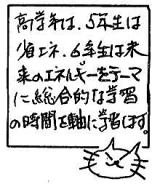 高学年は、5年生は
省エネ、6年生は未
来のエネルギーをテーマ
に総合的な学習
の時間を軸に学習します。